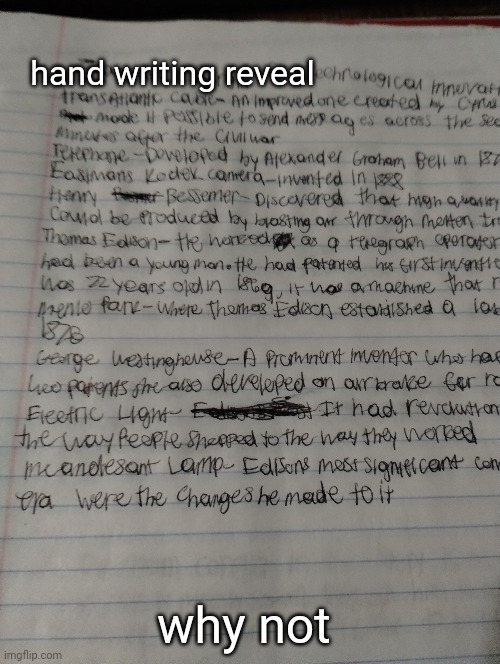 hand writing reveal
Technological Innovat
TransAtlantic Cable- An improved one created by Cyrus
made it possible to send messages across the sea
minutes after the Civil war
Telephone - Developed by Alexander Graham Bell in 187
Eastmans Kodek camera-invented in 1888
Henry Bessemer- Discovered that high quality
Could be produced by blasting air through melten Ir
Thomas Edison- He worked as a telegraph operator
had been a young man. He had patented his first inventio
was 22 years old in 1869, it was a machine that
Menlo Park- where Thomas Edison established a lab
1876
George Westinghouse- A prominent inventor who had
patents she also developed an air brake for
Electric Light- It had revolution
the way People shopped to the way they worked
incandesant Lamp- Edisons most significant con
era were the changes he made to it
why not
imgflip.com